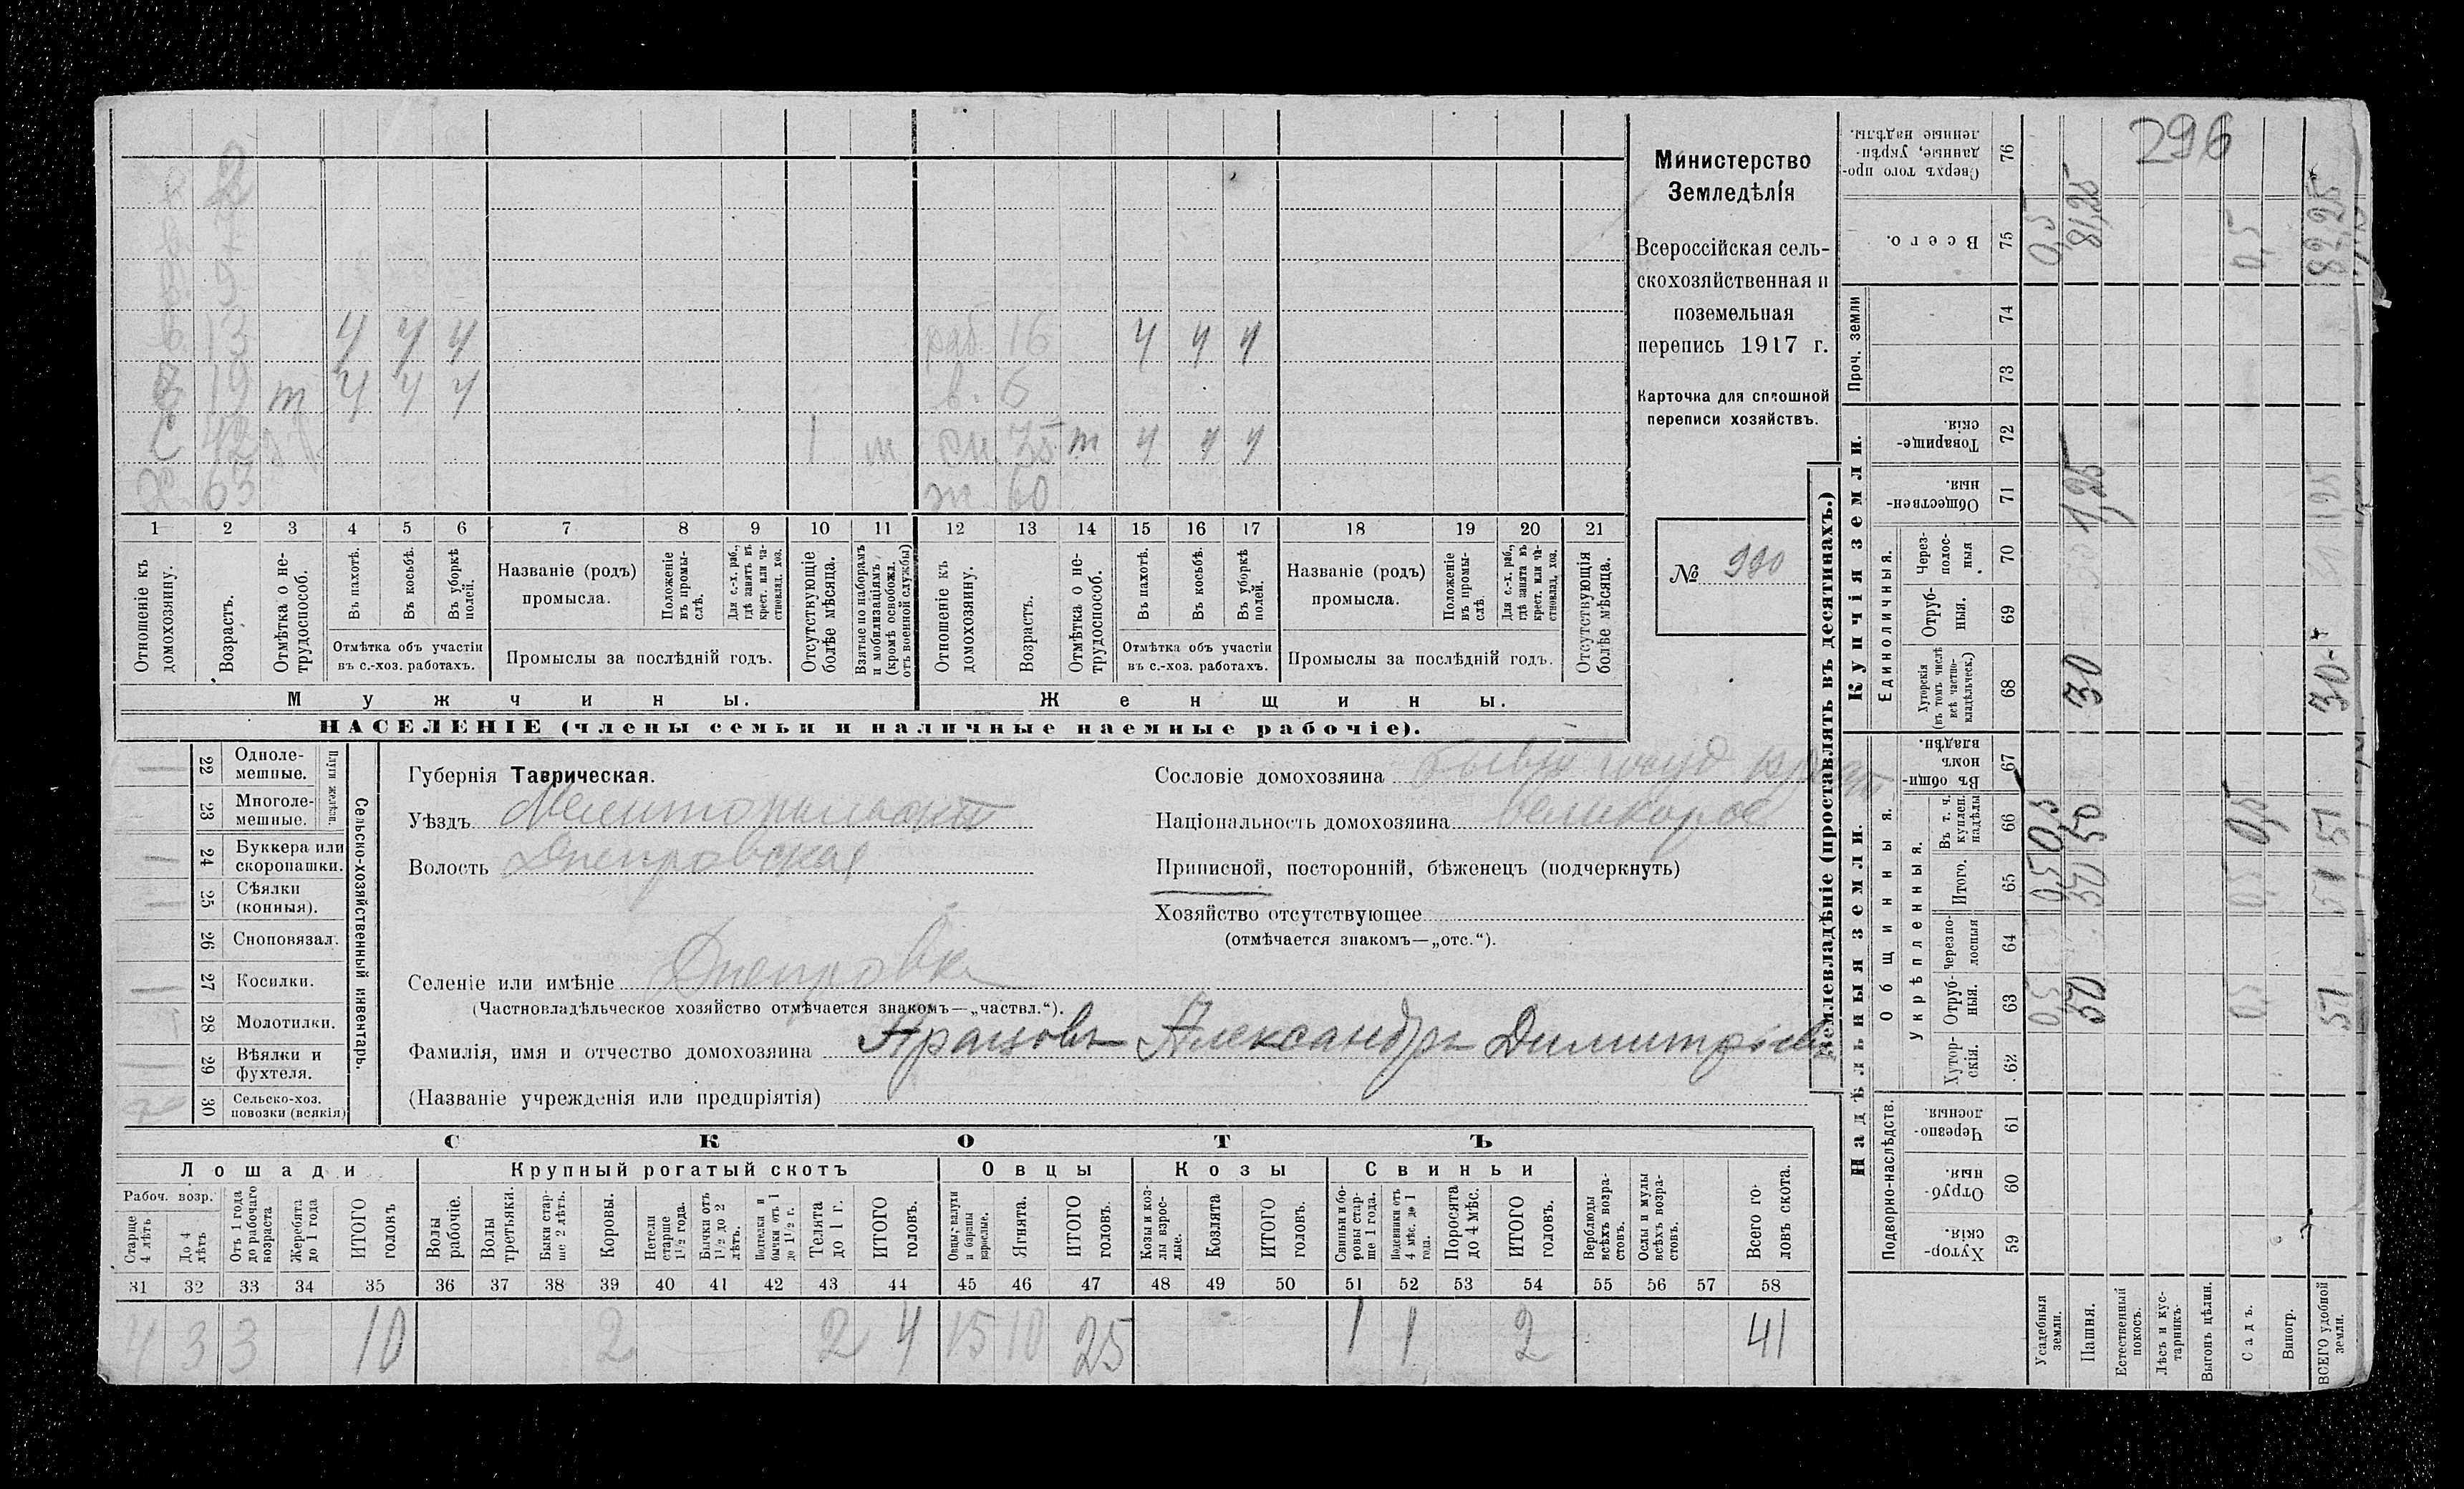 296
Министерство
Земледѣлія
Всероссійская сель-
скохозяйственная и
поземельная
перепись 1917 г.
Карточка для сплошной
переписи хозяйствъ.
№ 990
в. 2
в. 7
в. 9
в. 13 4 4 4 раб. 16 4 4 4
19 т 4 4 4 в. 6
42 1 т сн. 35 т 4 4 4
х. 63 ж. 60
1 2 3 4 5 6 7 8 9 10 11 12 13 14 15 16 17 18 19 20 21
Отношеніе къ домохозяину.
Возрастъ.
Отмѣтка о не-трудоспособ.
Въ пахотѣ.
Въ косьбѣ.
Въ уборкѣ полей.
Отмѣтка объ участіи
въ с.-хоз. работахъ.
Названіе (родъ)
промысла.
Положеніе въ промы-слѣ.
Для с.-х. раб., гдѣ занятъ въ крест. или ча-стновлад. хоз.
Промыслы за послѣдній годъ.
Отсутствующіе болѣе мѣсяца.
Взятые по наборамъ и мобилизаціямъ (кромѣ освобожд. отъ военной службы)
Отношеніе къ домохозяину.
Возрастъ.
Отмѣтка о не-трудоспособ.
Въ пахотѣ.
Въ косьбѣ.
Въ уборкѣ полей.
Отмѣтка объ участіи
въ с.-хоз. работахъ.
Названіе (родъ)
промысла.
Положеніе въ промы-слѣ.
Для с.-х. раб., гдѣ занята въ крест. или ча-стновлад. хоз.
Промыслы за послѣдній годъ.
Отсутствующія болѣе мѣсяца.
Мужчины. Женщины.
НАСЕЛЕНІЕ (члены семьи и наличные наемные рабочіе).
Сельско-хозяйственный инвентарь.
Плуги желѣзн.
22 Одноле-мешные.
23 Многоле-мешные.
24 Буккера или скоропашки.
25 Сѣялки (конныя).
26 Сноповязал.
27 Косилки.
28 Молотилки.
29 Вѣялки и фухтеля.
30 Сельско-хоз. повозки (всякія)
Губернія Таврическая.
Уѣздъ Мелитопольскій
Волость Днепровская
Селеніе или имѣніе Днепровка
(Частновладѣльческое хозяйство отмѣчается знакомъ—„частвл.“).
Фамилія, имя и отчество домохозяина Арацовъ Александръ Димитріевъ
(Названіе учрежденія или предпріятія)
Сословіе домохозяина бывш госуд крест
Національность домохозяина великорос
Приписной, посторонній, бѣженецъ (подчеркнуть)
Хозяйство отсутствующее
(отмѣчается знакомъ—„отс.“).
СКОТЪ
Лошади Крупный рогатый скотъ Овцы Козы Свиньи
Рабоч. возр.
Старше 4 лѣтъ
До 4 лѣтъ
Отъ 1 года до рабочаго возраста
Жеребята до 1 года
ИТОГО головъ
Волы рабочіе.
Волы третьяки.
Быки стар-ше 2 лѣтъ.
Коровы.
Нетели старше 1½ года.
Бычки отъ 1½ до 2 лѣтъ.
Подтелки и бычки отъ 1 до 1½ г.
Телята до 1 г.
ИТОГО головъ.
Овцы, валухи и бараны взрослые.
Ягнята.
ИТОГО головъ.
Козы и коз-лы взрос-лые.
Козлята
ИТОГО головъ.
Свиньи и бо-ровы стар-ше 1 года.
Подсвинки отъ 4 мѣс. до 1 года.
Поросята до 4 мѣс.
ИТОГО головъ.
Верблюды всѣхъ возра-стовъ.
Ослы и мулы всѣхъ возра-стовъ.
Всего го-ловъ скота.
31 32 33 34 35 36 37 38 39 40 41 42 43 44 45 46 47 48 49 50 51 52 53 54 55 56 57 58
4 3 3 10 2 2 4 15 10 25 1 1 2 41
Землевладѣніе (проставлять въ десятинахъ.)
Надѣльныя земли. Купчія земли. Проч. земли
Подворно-наслѣдств. Общинныя. Единоличныя.
Укрѣпленныя.
Хутор-скія. 59
Отруб-ныя. 60
Черезпо-лосныя. 61
Хутор-скія. 62
Отруб-ныя. 63
Черезпо-лосныя 64
Итого. 65
Въ т. ч. куплен. надѣлы 66
Въ общин-номъ владѣн. 67
Хуторскія (въ томъ числѣ всѣ частно-владѣльческ.) 68
Отруб-ныя. 69
Через-полос-ныя 70
Обществен-ныя. 71
Товарище-скія. 72
73
74
Всего. 75
Сверхъ того про-данные, укрѣп-ленные надѣлы. 76
Усадебныя земли. 0,5 0,5 0,5 0,5
Пашня. 50 50 50 30 1,25 81,25
Естественный покосъ.
Лѣсъ и кус-тарникъ.
Выгонъ цѣлин.
Садъ. 0,5 0,5 0,5 0,5
Виногр.
ВСЕГО удобной земли. 51 51 51 30 1,25 82,25